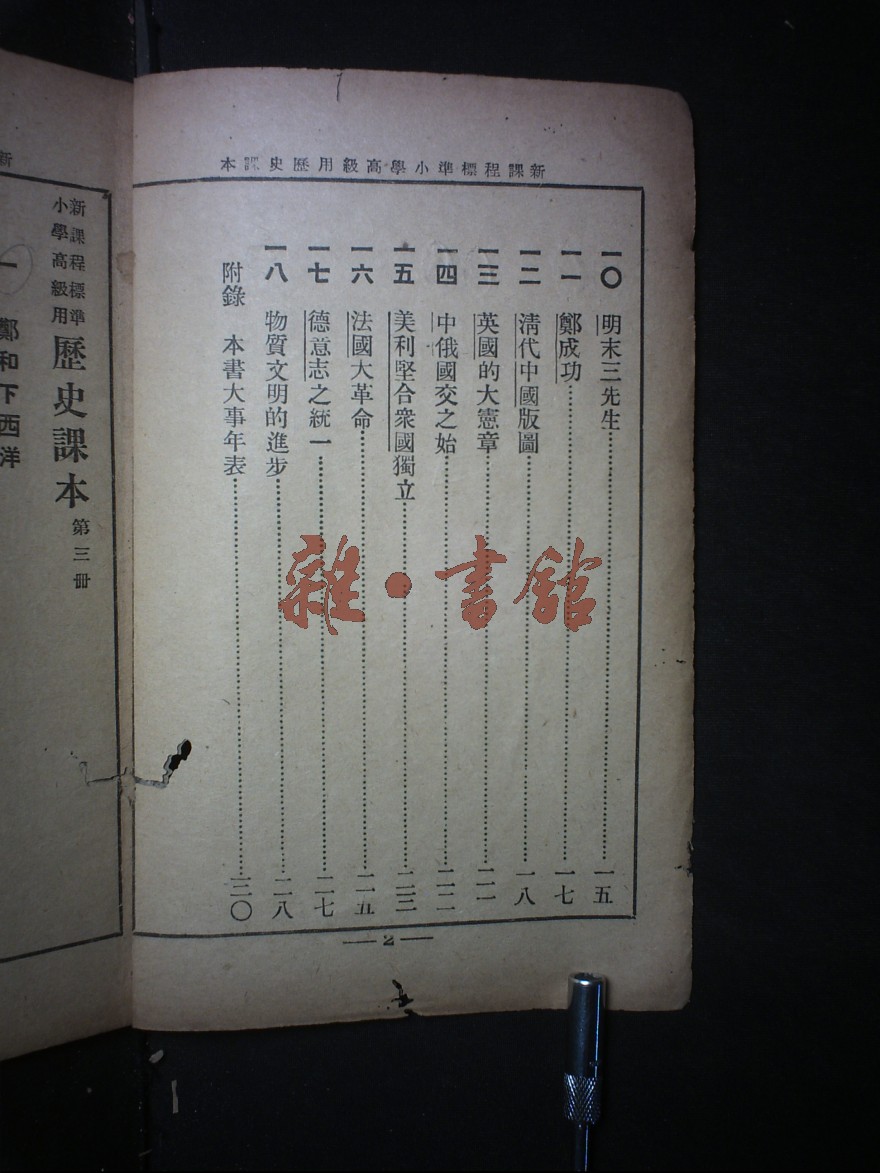 新課程標準小學高級用歷史課本
一〇 明末三先生……一五
一一 鄭成功……一七
一二 清代中國版圖……一八
一三 英國的大憲章……二一
一四 中俄國交之始……二二
一五 美利堅合衆國獨立……二三
一六 法國大革命……二五
一七 德意志之統一……二七
一八 物質文明的進步……二八
附錄 本書大事年表……三〇
2
雜·書館
新
新課程標準
小學高級用
歷史課本 第三冊
一 鄭和下西洋